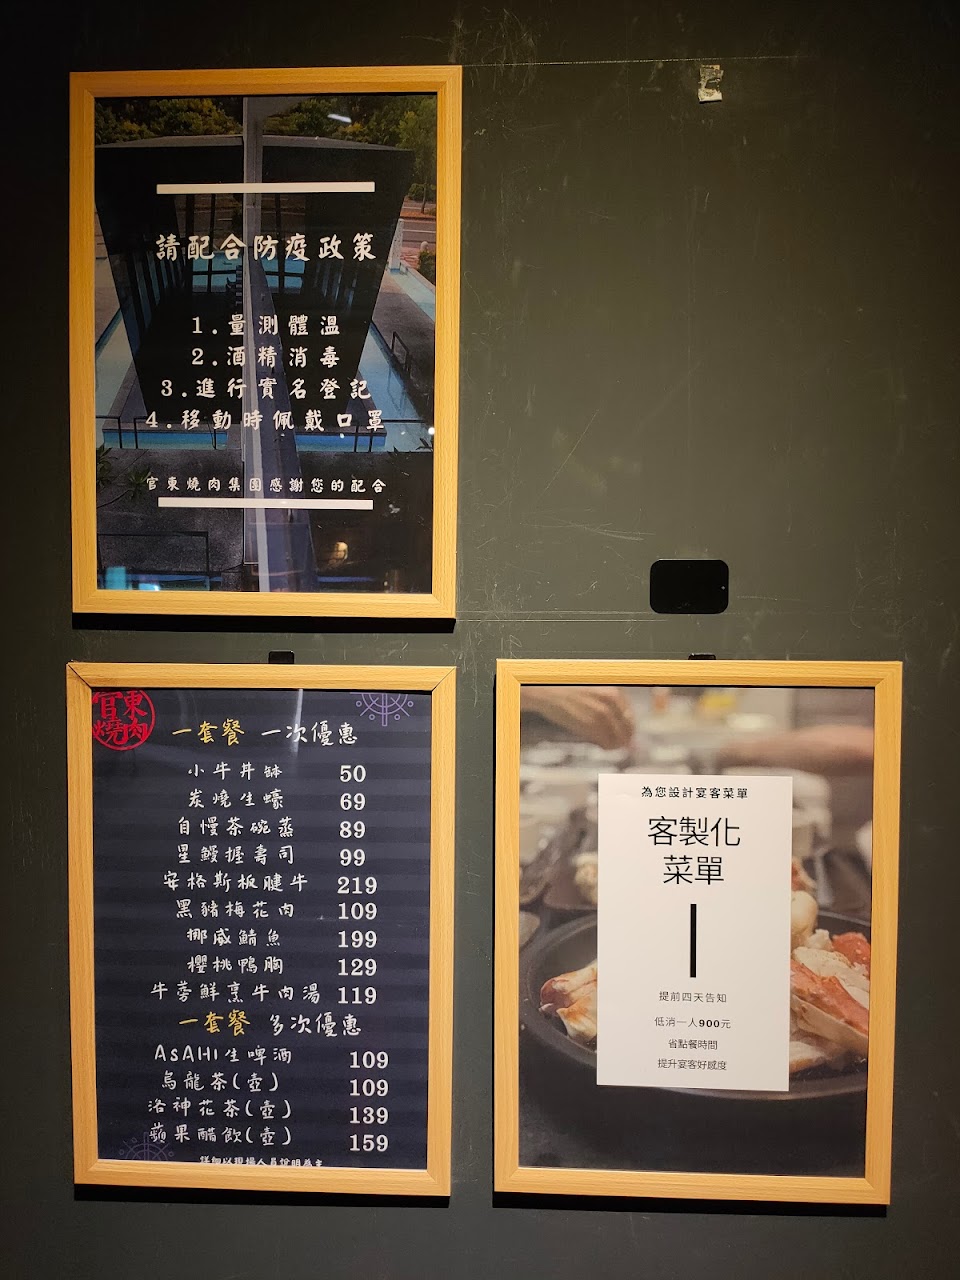 請配合防疫政策
1.量測體溫
2.酒精消毒
3.進行實名登記
4.移動時佩戴口罩
官東燒肉集團感謝您的配合
官東
燒肉
一套餐 一次優惠
小牛丼缽 50
炭燒生蠔 69
自慢茶碗蒸 89
星鰻握壽司 99
安格斯板腱牛 219
黑豬梅花肉 109
挪威鯖魚 199
櫻桃鴨胸 129
牛蒡鮮烹牛肉湯 119
一套餐 多次優惠
ASAHI生啤酒 109
烏龍茶(壺) 109
洛神花茶(壺) 139
蘋果醋飲(壺) 159
詳細以現場人員說明為主
為您設計宴客菜單
客製化
菜單
提前四天告知
低消一人900元
省點餐時間
提升宴客好感度